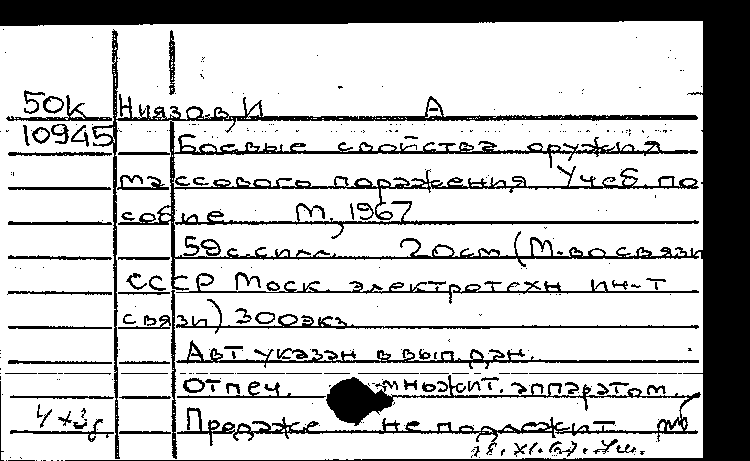 50к Ниязов, И А
10945 Боевые свойства оружия
массового поражения. Учеб. по-
собие. М., 1967
59 с. с илл. 20 см (М-во связи
СССР Моск. электротехн ин-т
связи) 300 экз.
Авт. указан в вып. дан.
Отпеч. множит. аппаратом.
Продаже не подлежит